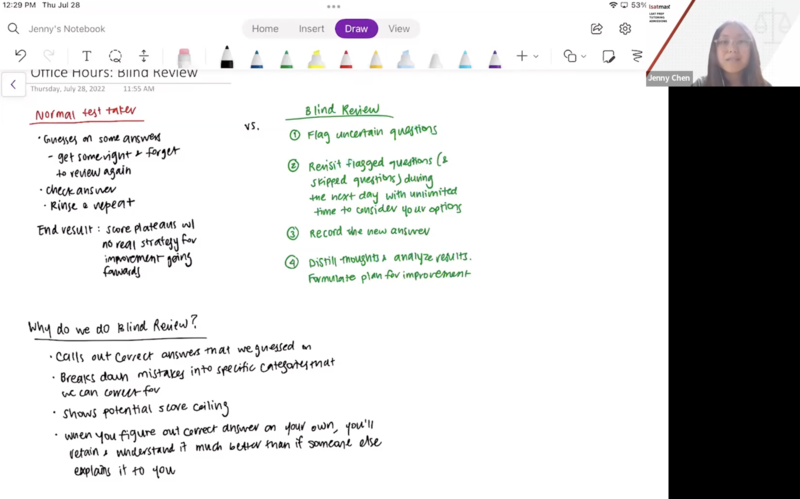 12:29 PM Thu Jul 28
53%
Jenny's Notebook
Home
Insert
Draw
View
Office Hours: Blind Review
Thursday, July 28, 2022 11:55 AM
Normal test taker
• Guesses on some answers
- get some right & forget
to review again
• check answer
• Rinse & repeat
End result: score plateaus w/
no real strategy for
improvement going
forwards
vs.
Blind Review
① Flag uncertain questions
② Revisit flagged questions (&
skipped questions) during
the next day with unlimited
time to consider your options
③ Record the new answer
④ Distill thoughts & analyze results.
Formulate plan for improvement
Why do we do Blind Review?
• Calls out correct answers that we guessed on
• Breaks down mistakes into specific categories that
we can correct for
• shows potential score ceiling
• when you figure out correct answer on your own, you'll
retain & understand it much better than if someone else
explains it to you
lsatmax
LSAT PREP
TUTORING
ADMISSIONS
Jenny Chen